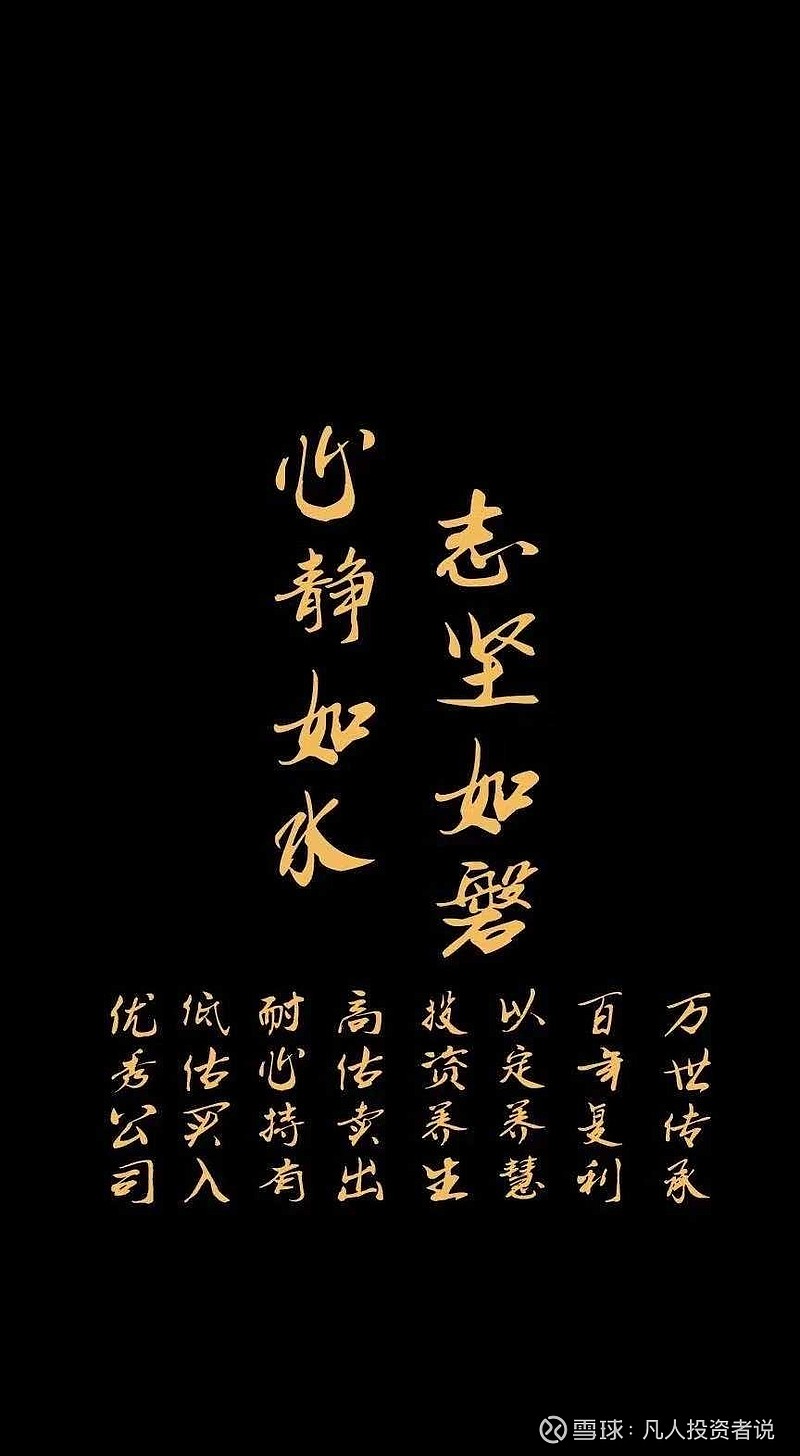 心静如水
志坚如磐
优秀公司
低估买入
耐心持有
高估卖出
投资养生
以定养慧
百年复利
万世传承
雪球：凡人投资者说